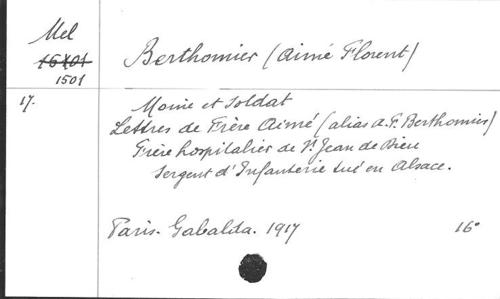 Mel
16401
1501
Berthomier (Aimé Florent)
17.
Moine et Soldat
Lettres de Frère Aimé (alias A. F. Berthomier)
Frère hospitalier de St Jean de Dieu
Sergent d'Infanterie tué en Alsace.
Paris. Gabalda. 1917
16°